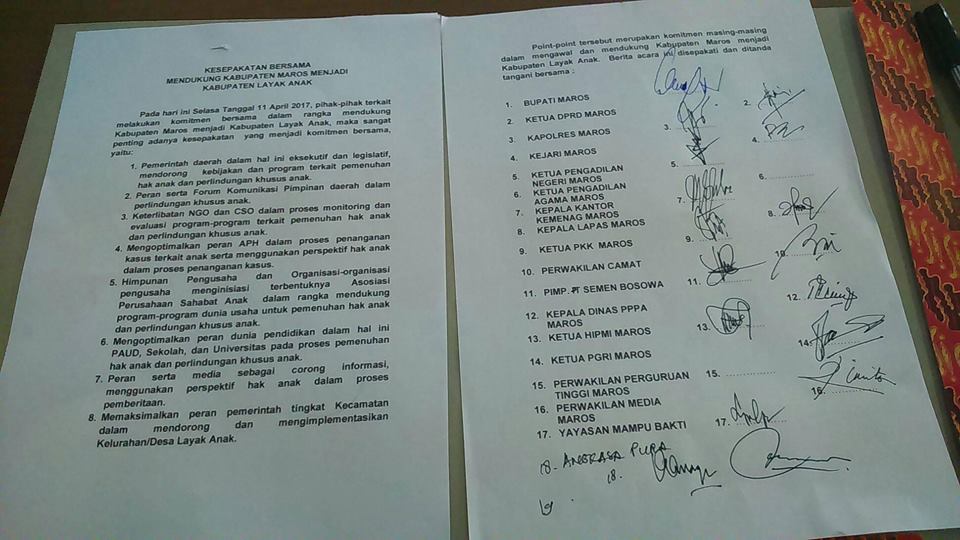 KESEPAKATAN BERSAMA
MENDUKUNG KABUPATEN MAROS MENJADI
KABUPATEN LAYAK ANAK
Pada hari ini Selasa Tanggal 11 April 2017, pihak-pihak terkait
melakukan komitmen bersama dalam rangka mendukung
Kabupaten Maros menjadi Kabupaten Layak Anak, maka sangat
penting adanya kesepakatan yang menjadi komitmen bersama,
yaitu:
1. Pemerintah daerah dalam hal ini eksekutif dan legislatif,
mendorong kebijakan dan program terkait pemenuhan
hak anak dan perlindungan khusus anak.
2. Peran serta Forum Komunikasi Pimpinan daerah dalam
perlindungan khusus anak.
3. Keterlibatan NGO dan CSO dalam proses monitoring dan
evaluasi program-program terkait pemenuhan hak anak
dan perlindungan khusus anak.
4. Mengoptimalkan peran APH dalam proses penanganan
kasus terkait anak serta menggunakan perspektif hak anak
dalam proses penanganan kasus.
5. Himpunan Pengusaha dan Organisasi-organisasi
pengusaha menginisiasi terbentuknya Asosiasi
Perusahaan Sahabat Anak dalam rangka mendukung
program-program dunia usaha untuk pemenuhan hak anak
dan perlindungan khusus anak.
6. Mengoptimalkan peran dunia pendidikan dalam hal ini
PAUD, Sekolah, dan Universitas pada proses pemenuhan
hak anak dan perlindungan khusus anak.
7. Peran serta media sebagai corong informasi,
menggunakan perspektif hak anak dalam proses
pemberitaan.
8. Memaksimalkan peran pemerintah tingkat Kecamatan
dalam mendorong dan mengimplementasikan
Kelurahan/Desa Layak Anak.
Point-point tersebut merupakan komitmen masing-masing
dalam mengawal dan mendukung Kabupaten Maros menjadi
Kabupaten Layak Anak. Berita acara ini disepakati dan ditanda
tangani bersama :
1. BUPATI MAROS
2. KETUA DPRD MAROS 2.
3. KAPOLRES MAROS 3.
4. KEJARI MAROS 4.
5. KETUA PENGADILAN 5.
NEGERI MAROS
6. KETUA PENGADILAN 6.
AGAMA MAROS
7. KEPALA KANTOR 7.
KEMENAG MAROS
8. KEPALA LAPAS MAROS 8.
9. KETUA PKK MAROS 9.
10. PERWAKILAN CAMAT 10.
11. PIMP. PT SEMEN BOSOWA 11.
12. KEPALA DINAS PPPA 12.
MAROS
13. KETUA HIPMI MAROS 13.
14. KETUA PGRI MAROS 14.
15. PERWAKILAN PERGURUAN 15.
TINGGI MAROS
16. PERWAKILAN MEDIA 16.
MAROS
17. YAYASAN MAMPU BAKTI 17.
18. ANGKASA PURA 18.